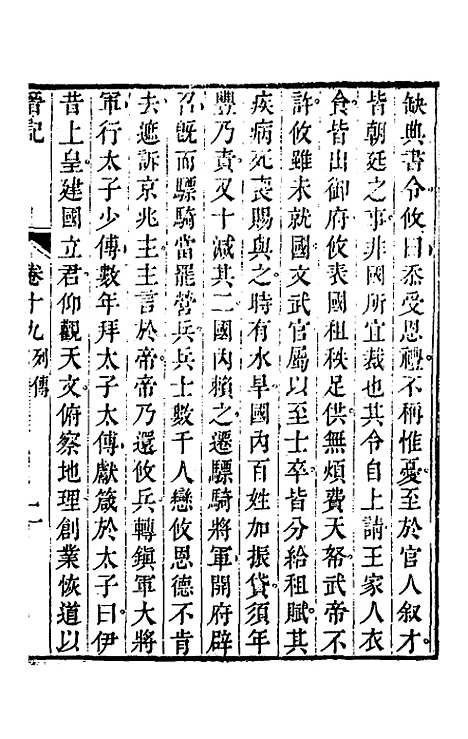 缺典書令攸曰忝受恩禮不稱惟憂至於官人叙才
皆朝廷之事非國所宜裁也其令自上請王家人衣
食皆出御府攸表國租秩足供無煩費天帑武帝不
許攸雖未就國文武官屬以至士卒皆分給租賦其
疾病死喪賜與之時有水旱國內百姓加振貸須年
豐乃責又十減其二國內賴之遷驃騎將軍開府辟
召旣而驃騎當罷營兵兵士數千人戀攸恩德不肯
去遮訴京兆主主言於帝帝乃還攸兵轉鎭軍大將
軍行太子少傅數年拜太子太傅獻箴於太子曰伊
昔上皇建國立君仰觀天文俯察地理創業恢道以
晉記
卷十九列傳